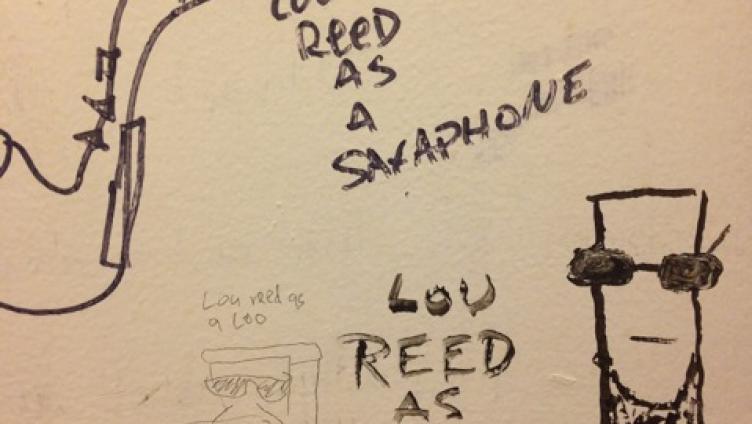 REED
AS
A
SAXAPHONE
Lou reed as
a LOO
LOU
REED
AS